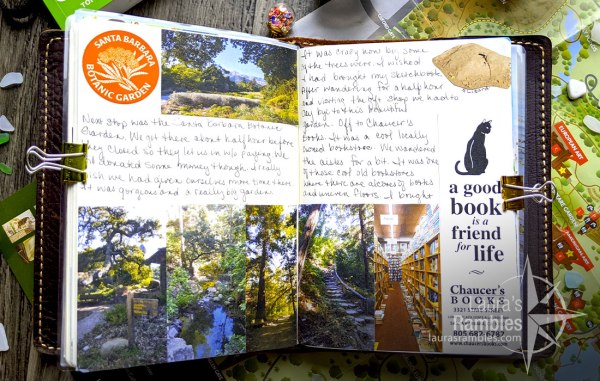 SANTA BARBARA
BOTANIC GARDEN
Next stop was the Santa Barbara Botanic
Garden. We got there about half hour before
they closed so they let us in w/o paying. We
did donate some money though. I really
wish we had given ourselves more time there
it was gorgeous and a really big garden.
It was crazy how big some
of the trees were. I wished
I had brought my sketchbook.
After wandering for a half hour
and visiting the gift shop we had to
say bye to this beautiful
garden. Off to Chaucer's
books. It was a cool locally
owned bookstore. We wandered
the aisles for a bit. It was one
of those cool old bookstores
where there are alcoves of books
and uneven floors. I bought
a good
book is
a friend
for life
Chaucer's
BOOKS
3321 STATE STREET
805-682-6787
www.chaucersbooks.com
Laura's
Rambles
laurasrambles.com
EUROPEAN ART